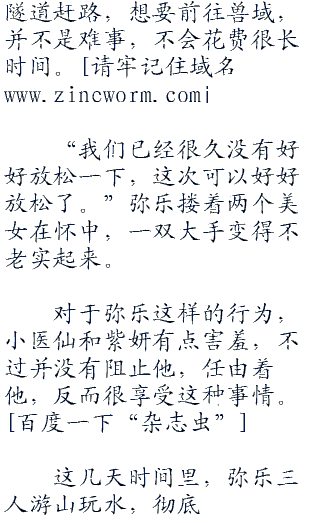 隧道赶路，想要前往兽域，
并不是难事，不会花费很长
时间。[请牢记住域名
www.zincworm.com|
“我们已经很久没有好
好放松一下，这次可以好好
放松了。”弥乐搂着两个美
女在怀中，一双大手变得不
老实起来。
对于弥乐这样的行为，
小医仙和紫妍有点害羞，不
过并没有阻止他，任由着
他，反而很享受这种事情。
[百度一下“杂志虫”]
这几天时间里，弥乐三
人游山玩水，彻底